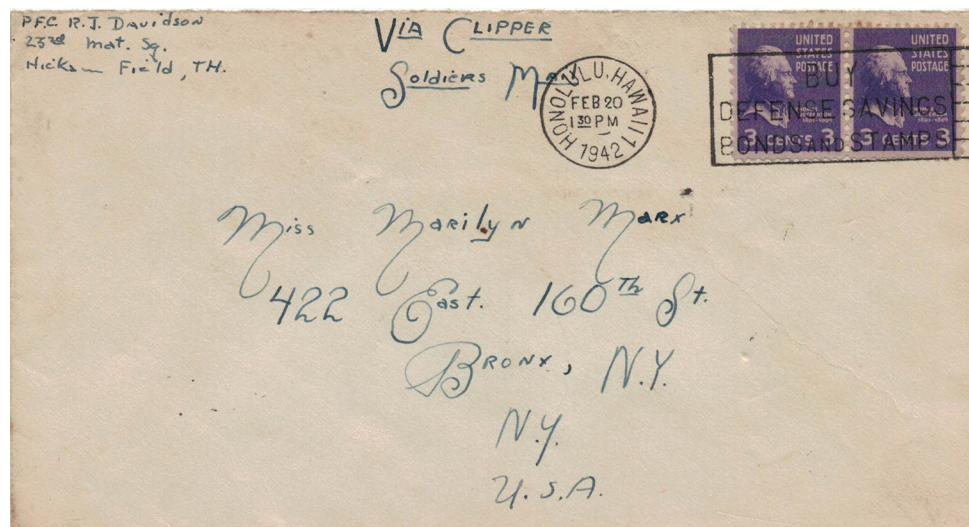 P.F.C. R.J. Davidson
23rd Mat. Sq.
Hickam Field, T.H.
Via Clipper
Soldiers Mail
HONOLULU, HAWAII 1
FEB 20
1 30 PM
1942
UNITED STATES POSTAGE
3 CENTS 3
UNITED STATES POSTAGE
3 CENTS 3
BUY
DEFENSE SAVINGS
BONDS AND STAMPS
Miss Marilyn Marx
422 East. 160th St.
Bronx, N.Y.
N.Y.
U.S.A.